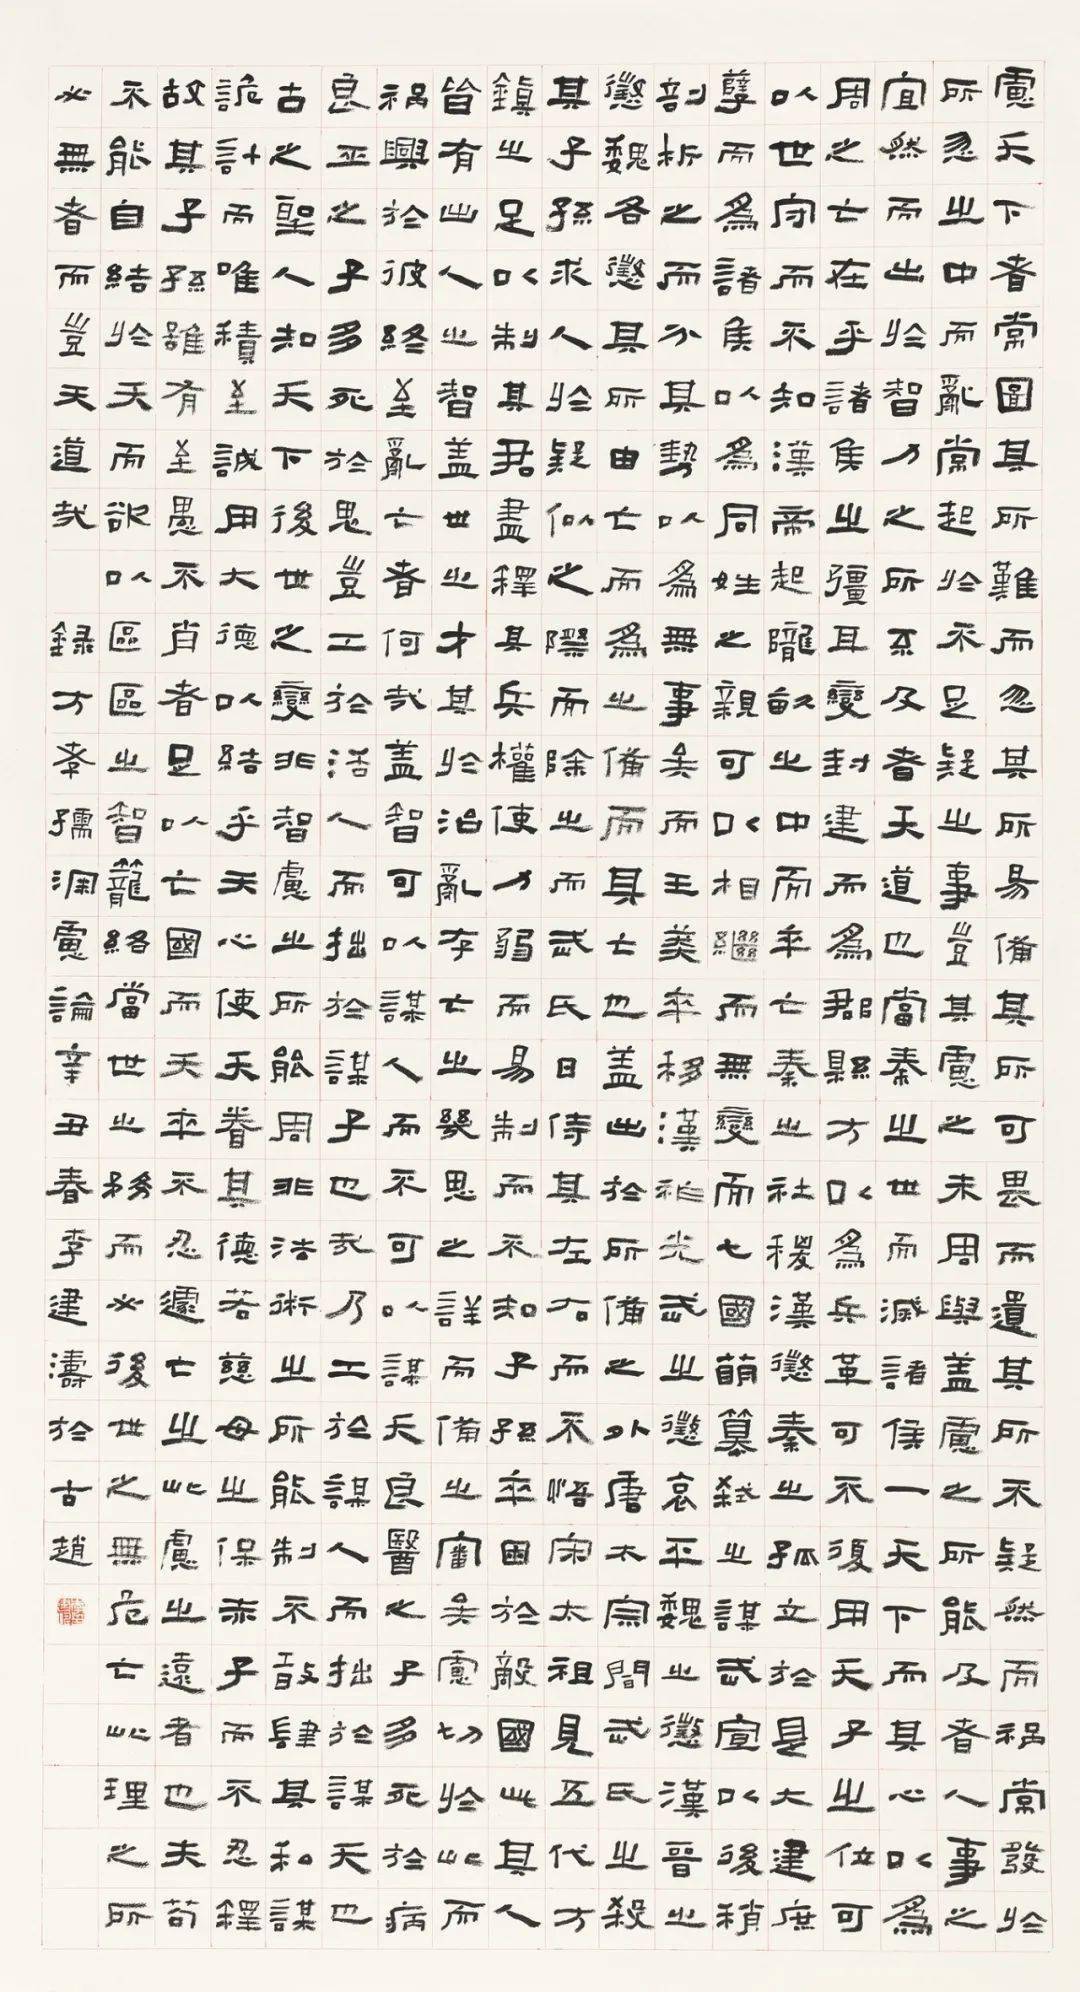 慮天下者常圖其所難而忽其所易備其所可畏而遺其所不疑然而禍常發於
所忽之中而亂常起於不足疑之事豈其慮之未周與盖慮之所能及者人事之
宜然而出於智力之所不及者天道也當秦之世而滅諸侯一天下而其心以爲
周之亡在乎諸侯之彊耳變封建而爲郡縣方以爲兵革可不復用天子之位可
以世守而不知漢帝起隴畝之中而卒亡秦之社稷漢懲秦之孤立於是大建庶
孽而爲諸侯以爲同姓之親可以相繼而無變而七國萌篡弑之謀武宣以後稍
剖析之而分其勢以爲無事矣而王莽卒移漢祚光武之懲哀平魏之懲漢晉之
懲魏各懲其所由亡而爲之備而其亡也盖出於所備之外唐太宗間武氏之殺
其子孫求人於疑似之際而除之而武氏日侍其左右而不悟宋太祖見五代方
鎮之足以制其君盡釋其兵權使力弱而易制而不知子孫卒困於敵國此其人
皆有出人之智盖世之才其於治亂存亡之幾思之詳而備之審矣慮切於此而
禍興於彼終至亂亡者何哉盖智可以謀人而不可以謀天良醫之子多死於病
良巫之子多死於鬼豈工於活人而拙於謀子也哉乃工於謀人而拙於謀天也
古之聖人知天下後世之變非智慮之所能周非法術之所能制不敢肆其私謀
詭計而唯積至誠用大德以結乎天心使天眷其德若慈母之保赤子而不忍釋
故其子孫雖有至愚不肖者足以亡國而天卒不忍遽亡之此慮之遠者也夫苟
不能自結於天而欲以區區之智籠絡當世之務而必後世之無危亡此理之所
必無者而豈天道哉 録方孝孺深慮論辛丑春李建濤於古趙